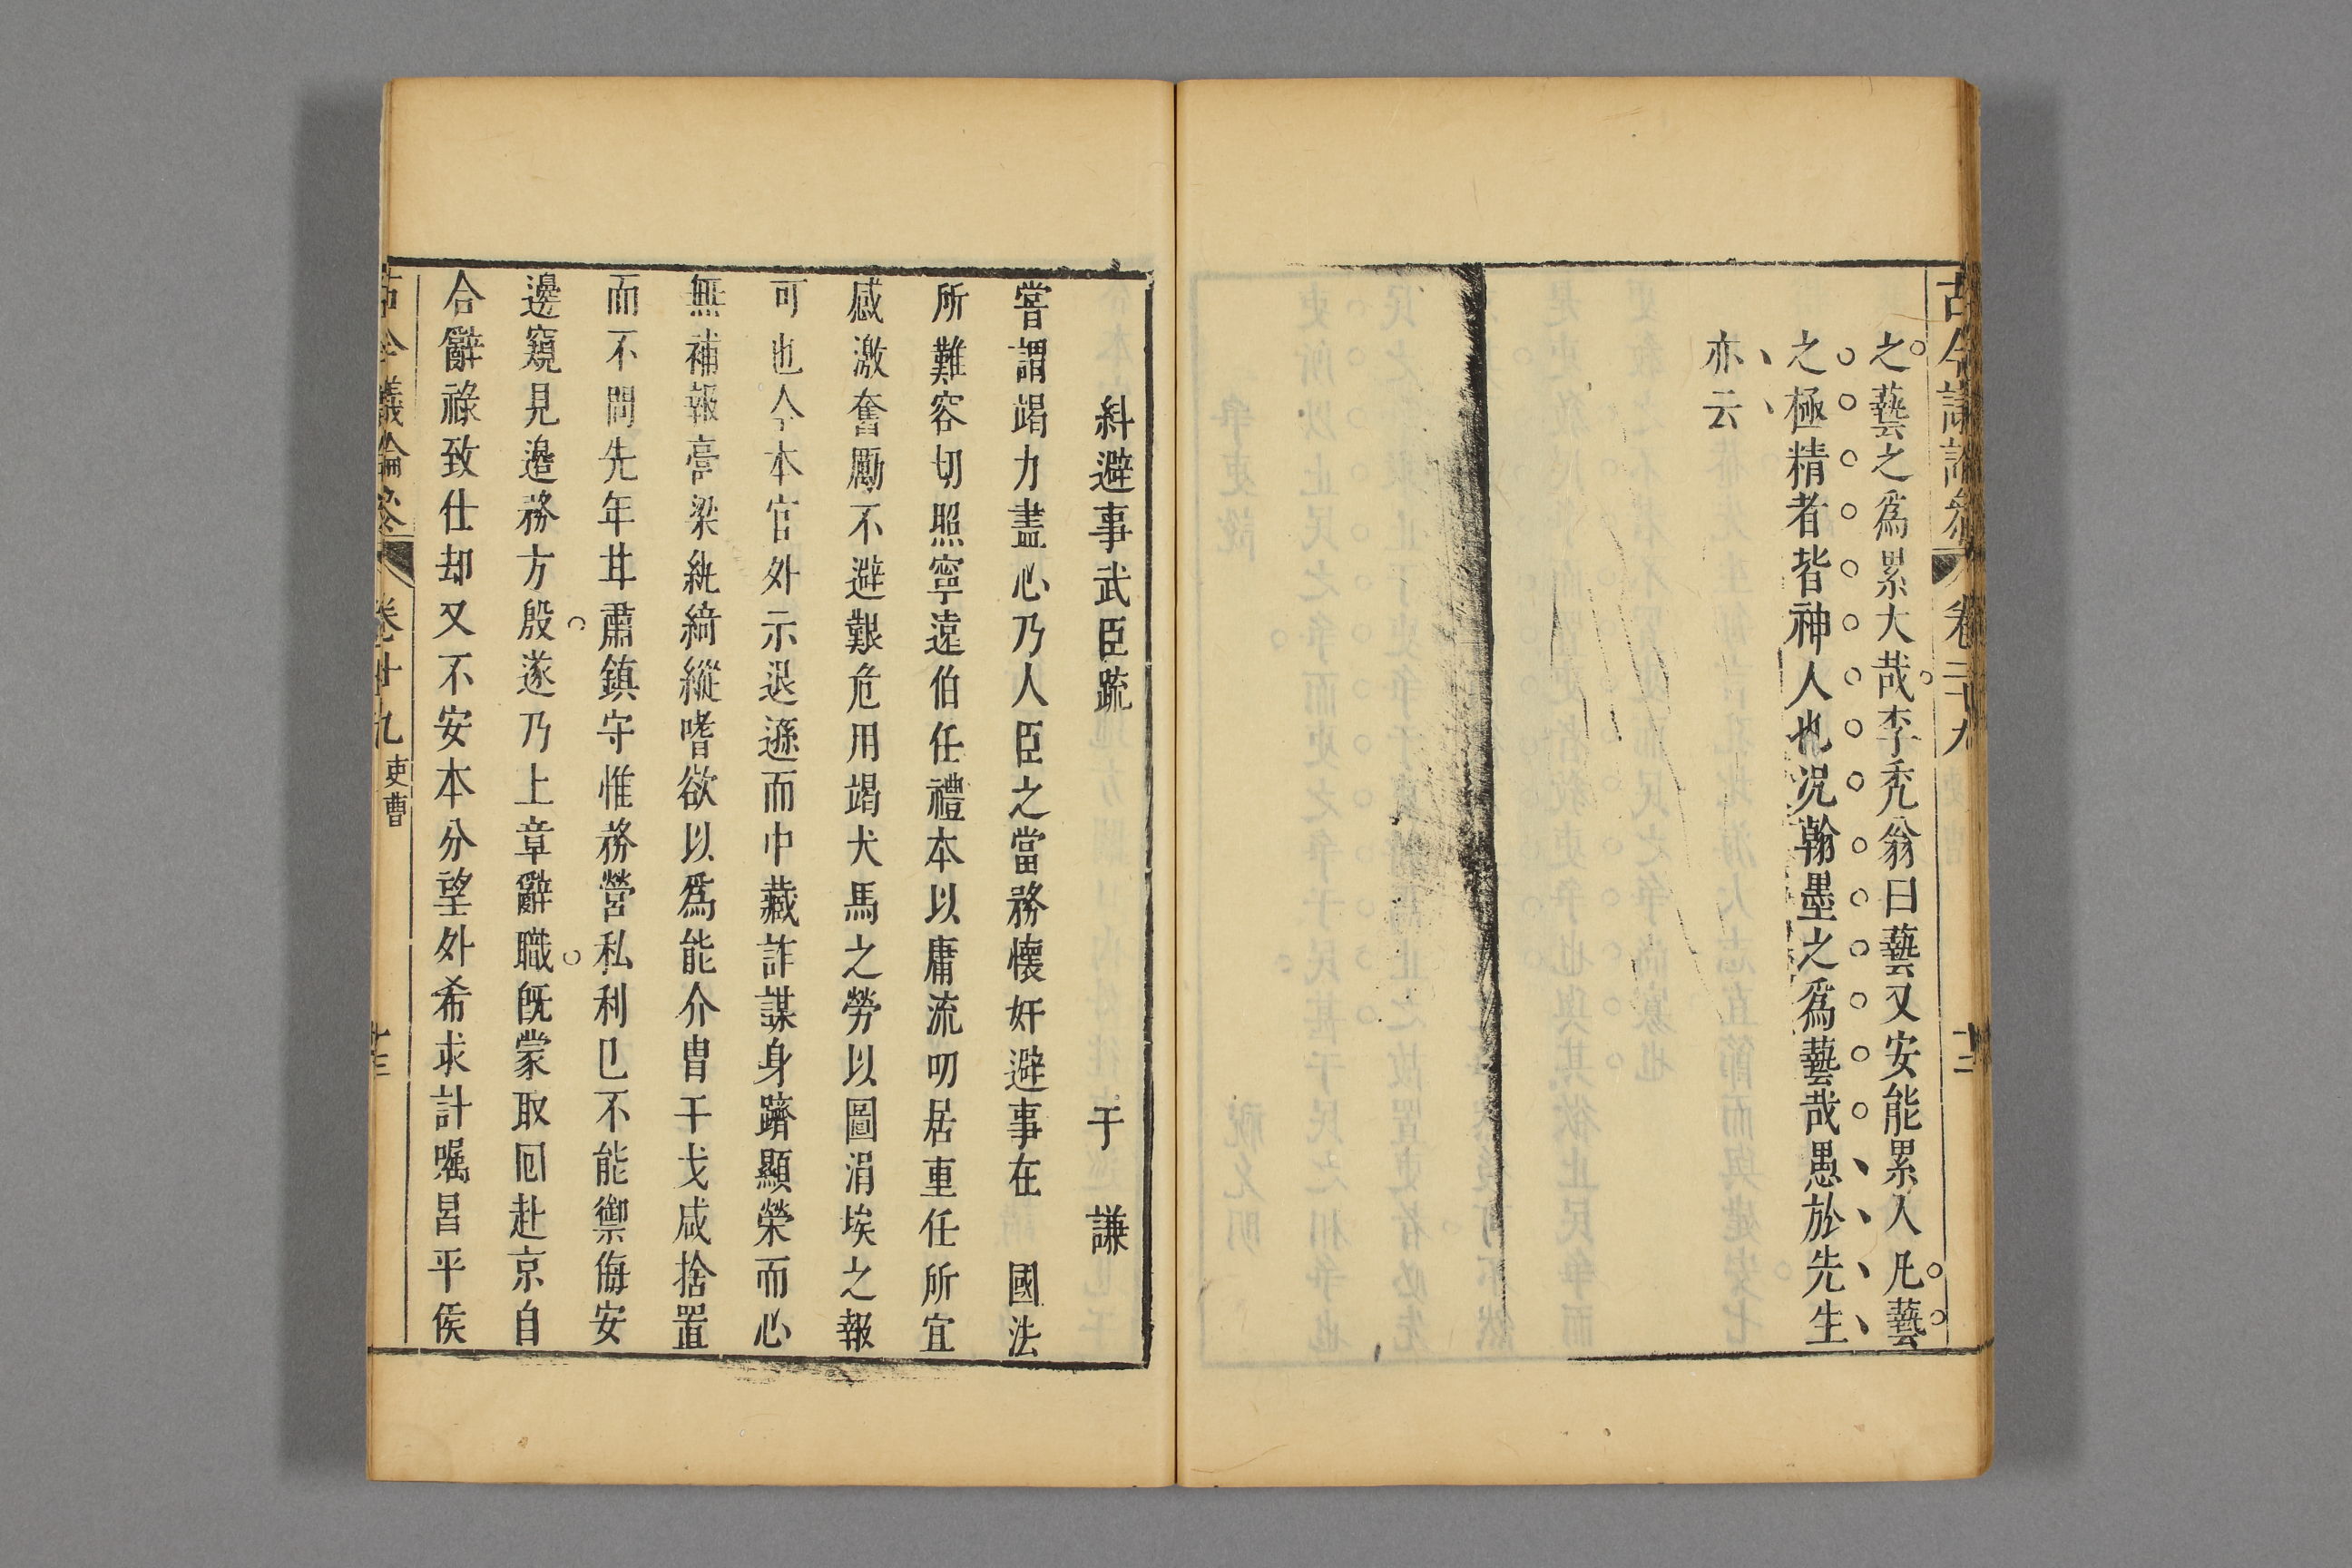 古今議論參 卷二十九 十二
之藝之爲累大哉李禿翁曰藝又安能累人凡藝
之極精者皆神人也况翰墨之爲藝哉愚於先生
亦云
糾避事武臣疏 于謙
嘗謂竭力盡心乃人臣之當務懷奸避事在 國法
所難容切照寧遠伯任禮本以庸流叨居重任所宜
感激奮勵不避艱危用竭犬馬之勞以圖涓埃之報
可也今本官外示退遜而中藏詐謀身躋顯榮而心
無補報膏梁紈綺縱嗜欲以爲能介胄干戈咸捨置
而不問先年甘肅鎮守惟務營私利已不能禦侮安
邊窺見邊務方殷遂乃上章辭職旣蒙取囘赴京自
合辭祿致仕却又不安本分望外希求計囑昌平侯
古今議論參 卷廿九 吏曹 十三